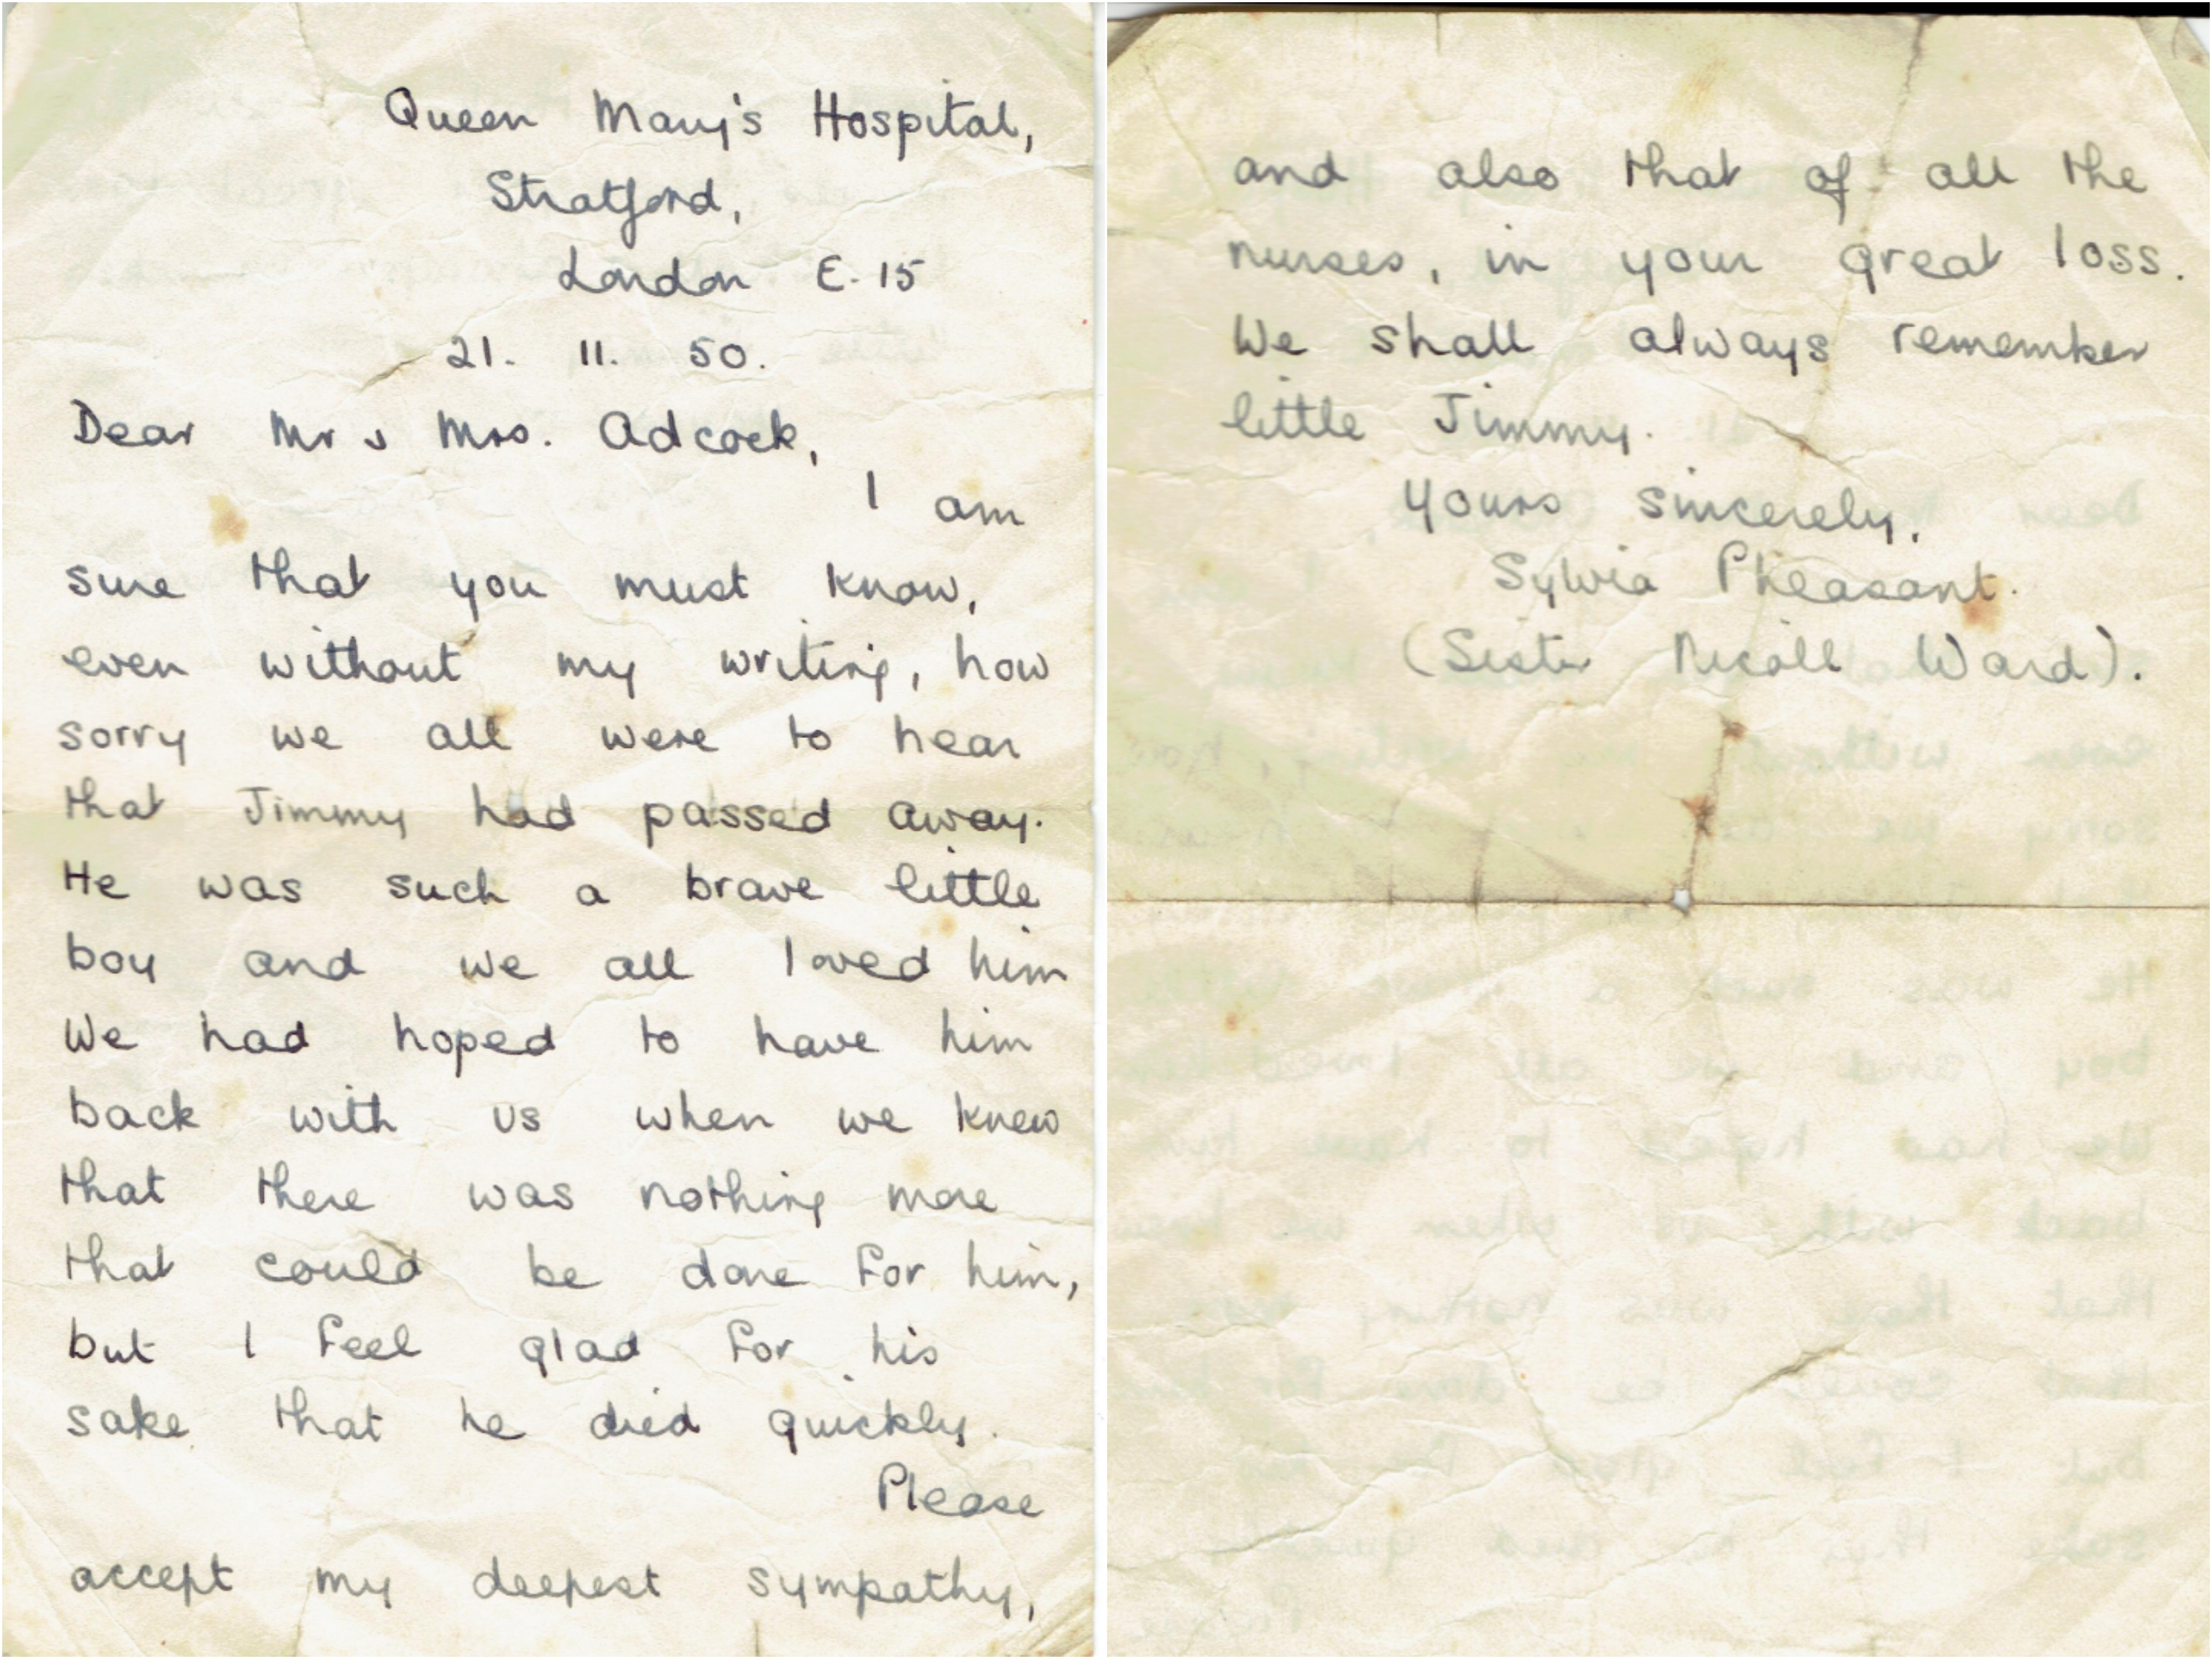 Queen Mary's Hospital,
Stratford,
London E. 15
21. 11. 50.
Dear Mr & Mrs. Adcock,
I am
sure that you must know,
even without my writing, how
sorry we all were to hear
that Jimmy had passed away.
He was such a brave little
boy and we all loved him
We had hoped to have him
back with us when we knew
that there was nothing more
that could be done for him,
but I feel glad for his
sake that he died quickly.
Please
accept my deepest sympathy,
and also that of all the
nurses, in your great loss.
We shall always remember
little Jimmy.
Yours sincerely,
Sylvia Pheasant.
(Sister Nicoll Ward).